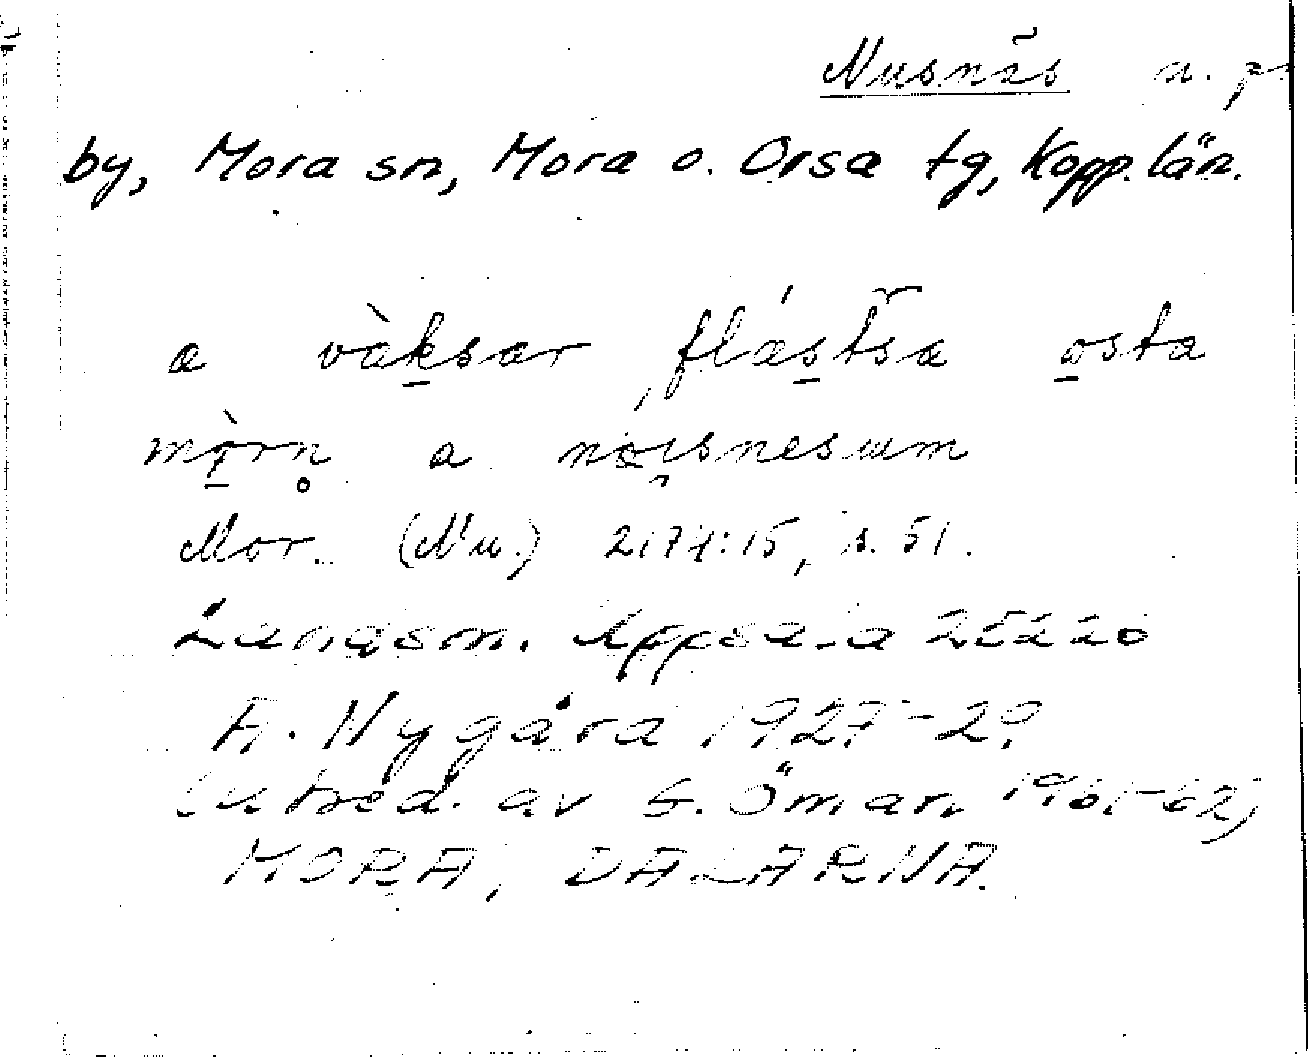 Nusnäs n. pr
by, Mora sn, Mora o. Orsa tg, Kopp. län.
a vàksar flástsa osta
mòrn a nóisnesum
Mor. (Nu.) 2174:15, s. 51.
Landsm. Uppsala
A. Nygård 1927-29
(utred. av G. Öman 1961-62)
MORA, DALARNA.